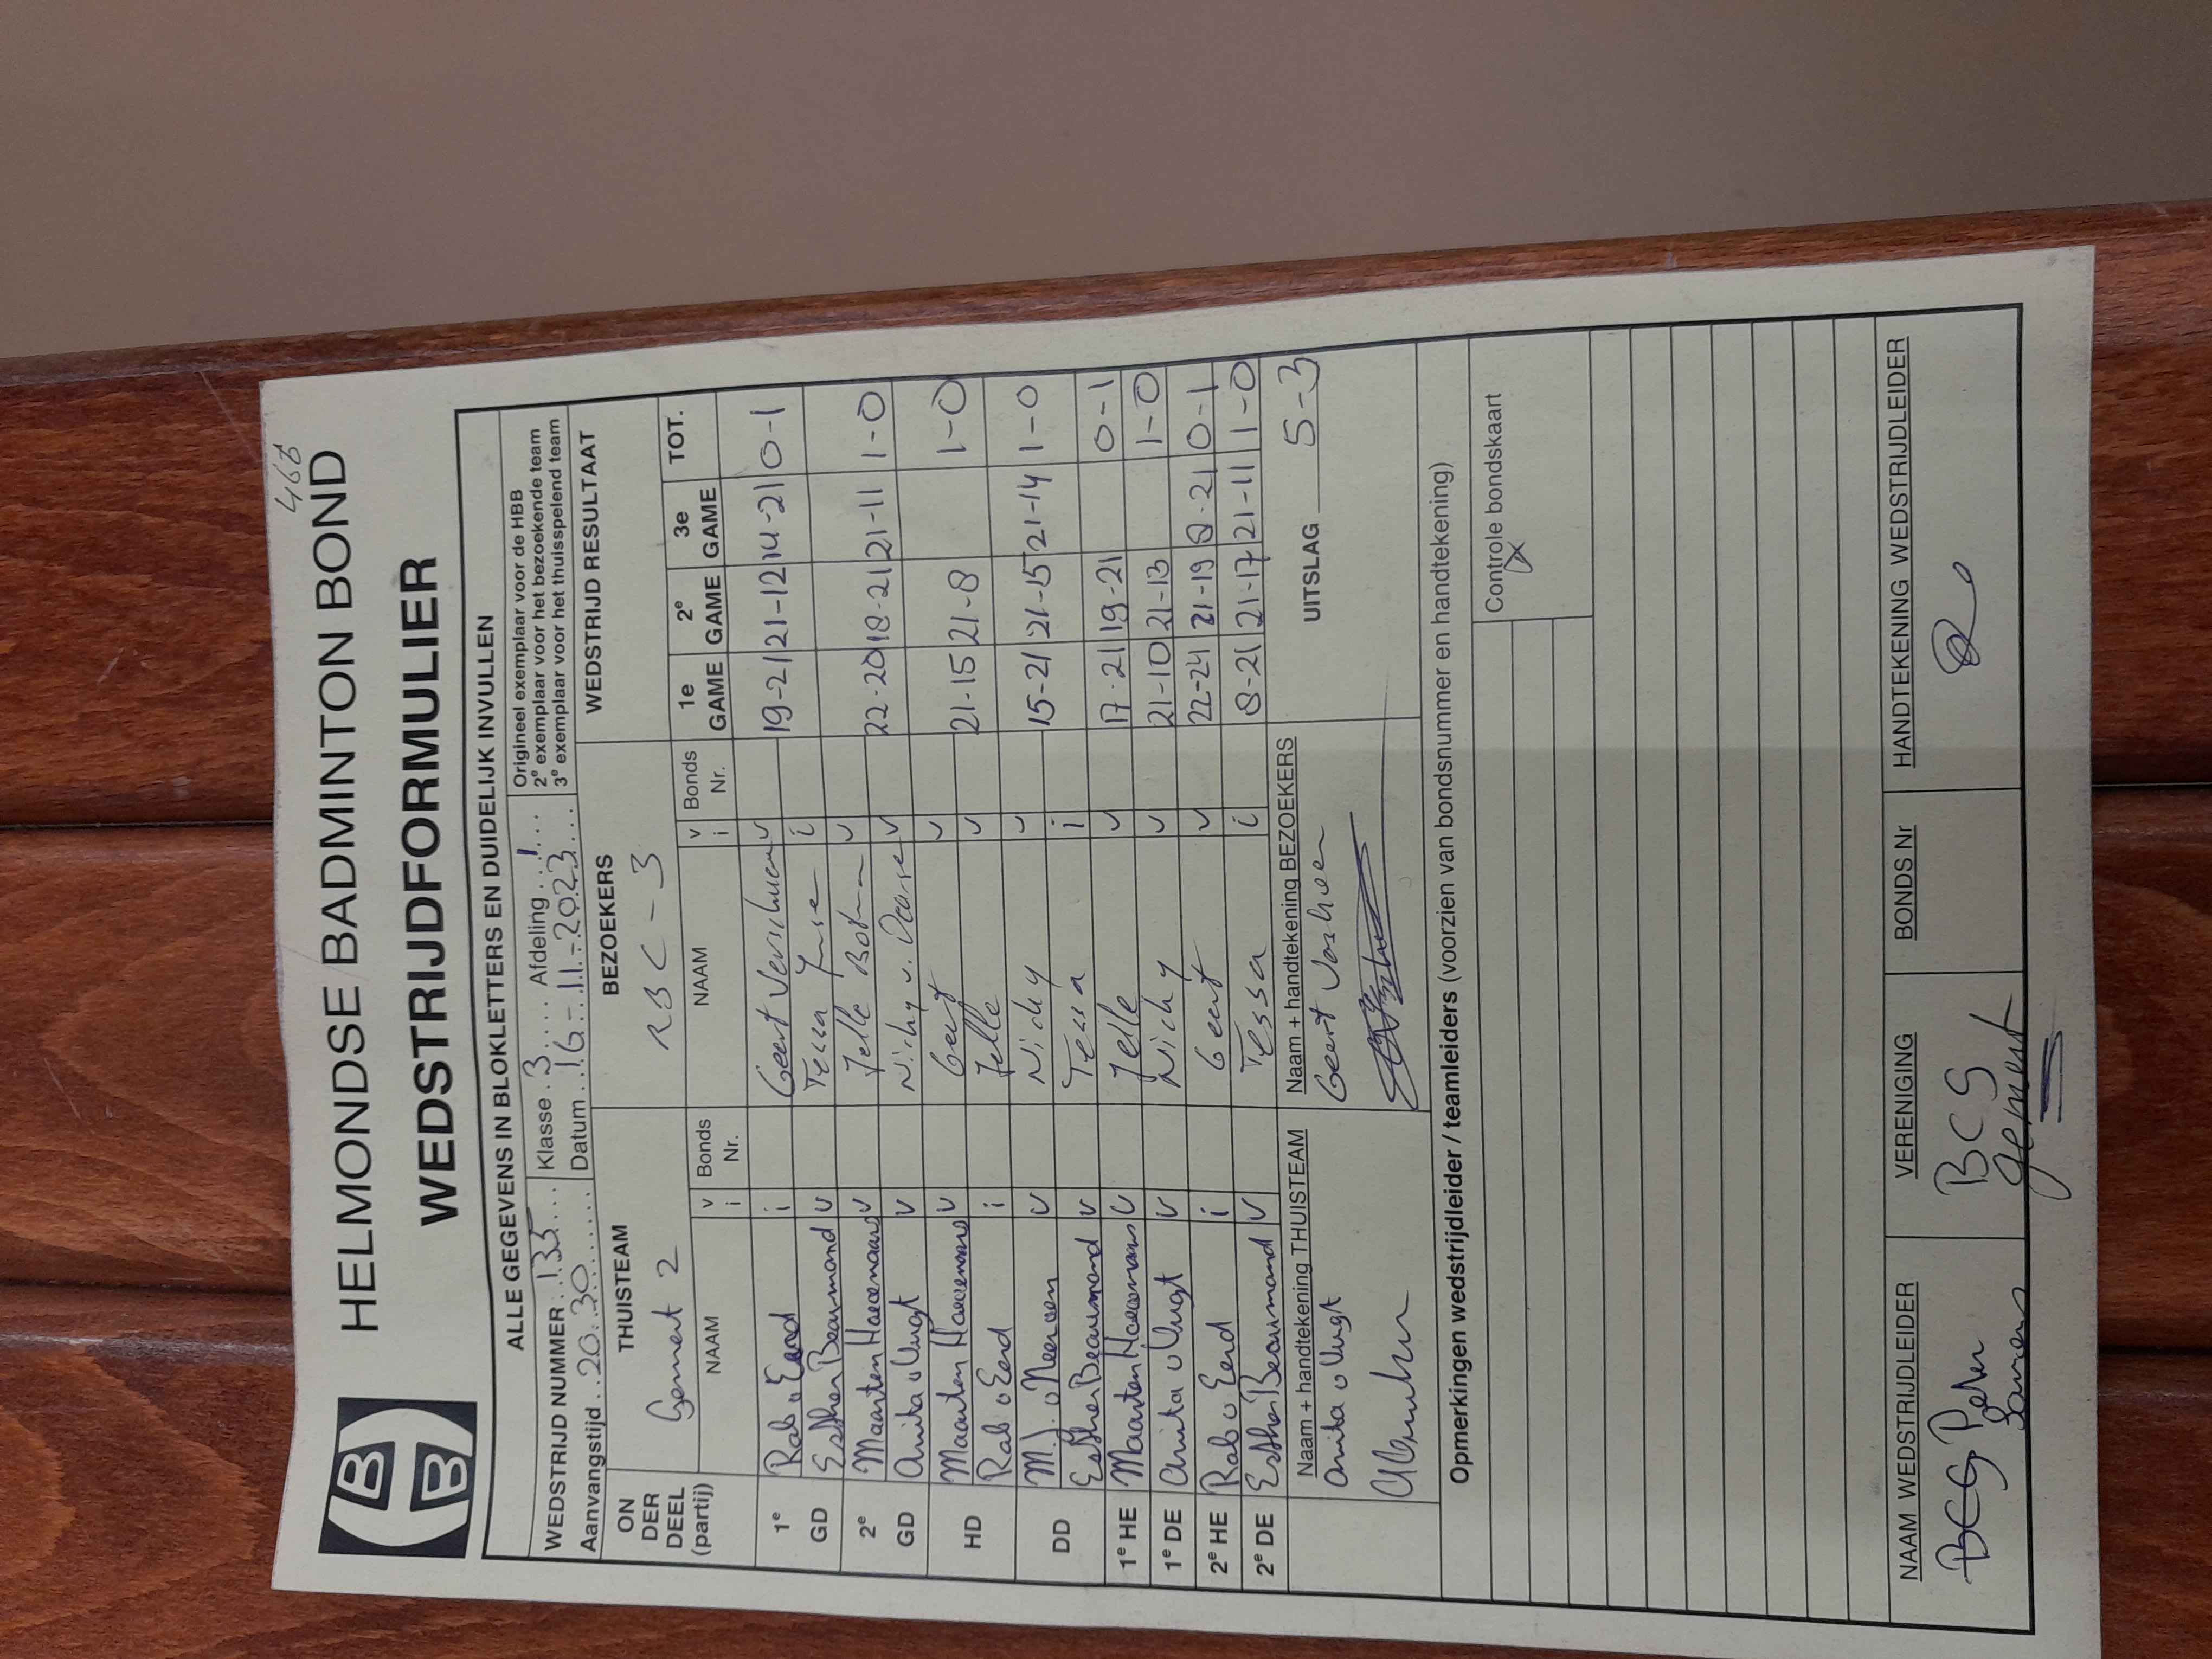 466
HELMONDSE BADMINTON BOND
WEDSTRIJDFORMULIER
ALLE GEGEVENS IN BLOKLETTERS EN DUIDELIJK INVULLEN
WEDSTRIJD NUMMER 135 Klasse 3 Afdeling 1
Aanvangstijd 20.30 Datum 16-11-2023
Origineel exemplaar voor de HBB
2e exemplaar voor het bezoekende team
3e exemplaar voor het thuisspelend team
ON DER DEEL (partij) THUISTEAM BEZOEKERS WEDSTRIJD RESULTAAT
Gemert 2 RBC-3
NAAM v i Bonds Nr. NAAM v i Bonds Nr. 1e GAME 2e GAME 3e GAME TOT.
1e GD Rob v Eerd i Geert Verschueren v 19-21 21-12 14-21 0-1
Esther Beaumond v Tessa i
2e GD Maarten v Jelle v 22-20 18-21 21-11 1-0
Anita v Vugt v Nicky v. v
HD Maarten v Geert v 21-15 21-8 1-0
Rob v Eerd i Jelle v
DD M.J. v Neerven v Nicky v 15-21 21-15 21-14 1-0
Esther Beaumond v Tessa i
1e HE Maarten v Jelle v 17-21 19-21 0-1
1e DE Anita v Vugt v Nicky v 21-10 21-13 1-0
2e HE Rob v Eerd i Geert v 22-24 21-19 8-21 0-1
2e DE Esther Beaumond v Tessa i 8-21 21-17 21-11 1-0
Naam + handtekening THUISTEAM Naam + handtekening BEZOEKERS UITSLAG 5-3
Anita v Vugt Geert
Opmerkingen wedstrijdleider / teamleiders (voorzien van bondsnummer en handtekening)
Controle bondskaart
X
NAAM WEDSTRIJDLEIDER VERENIGING BONDS Nr HANDTEKENING WEDSTRIJDLEIDER
BCG Peter BCG
Gemert